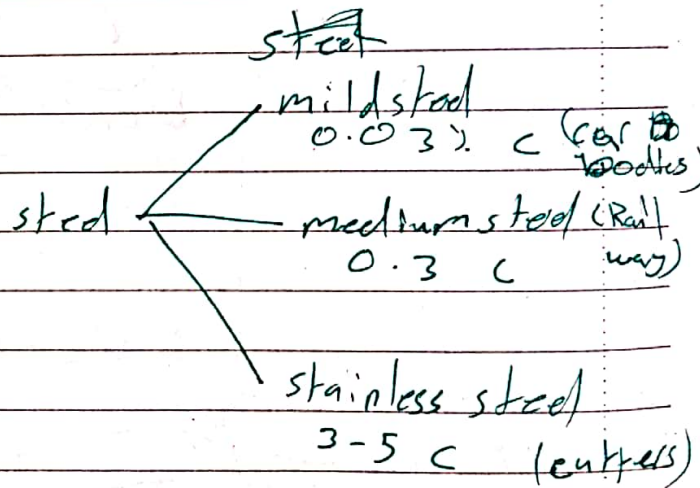 steel
mild steel
0.03% C (car bodies)
steel
medium steel (Rail way)
0.3 C
stainless steel
3-5 C (cutters)